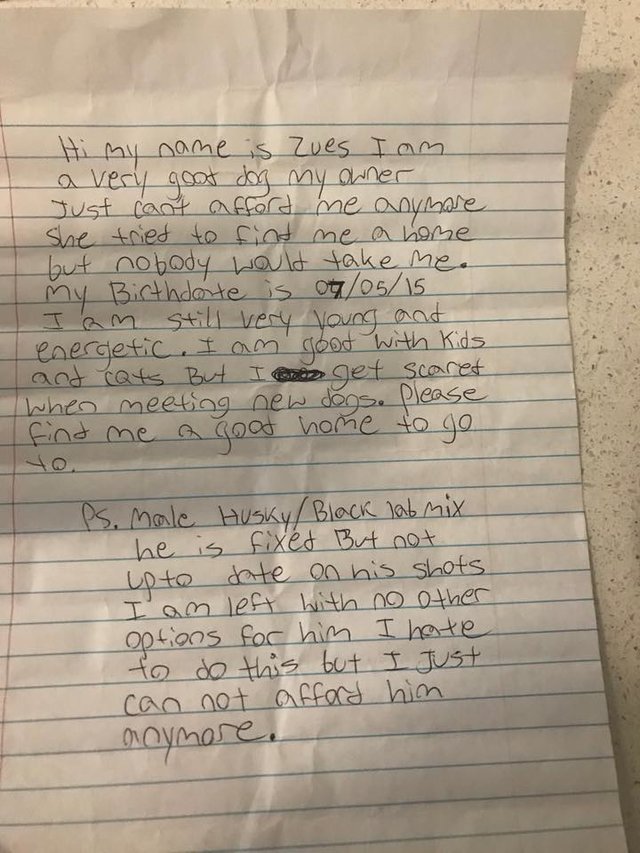 Hi my name is Zues I am
a very good dog my owner
Just can't afford me anymore
she tried to find me a home
but nobody would take me.
my Birthdate is 07/05/15
I am still very young and
energetic. I am good with kids
and cats But I get scared
when meeting new dogs. Please
find me a good home to go
to.
Ps. male Husky/Black lab mix
he is fixed But not
up to date on his shots
I am left with no other
options for him I hate
to do this but I Just
can not afford him
anymore.